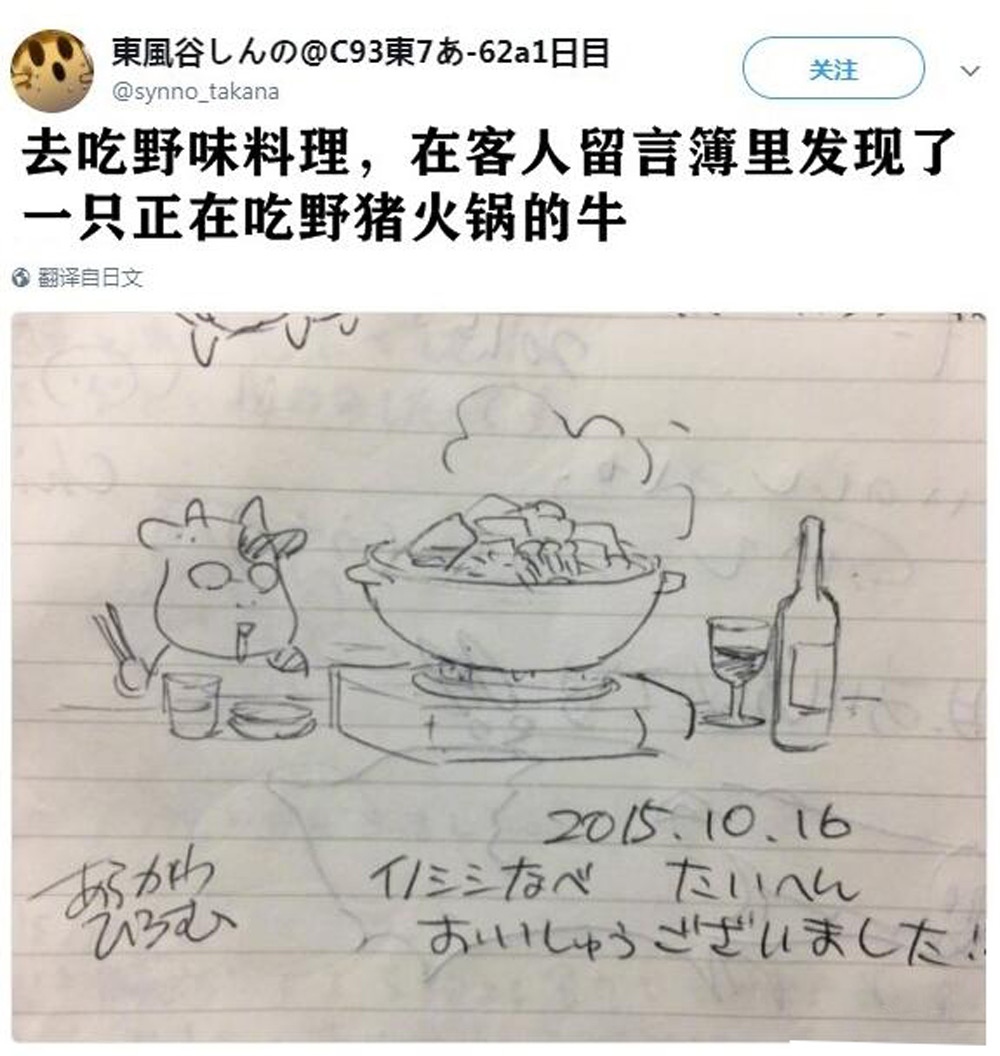 東風谷しんの@C93東7あ-62a1日目
@synno_takana
关注
去吃野味料理，在客人留言簿里发现了
一只正在吃野猪火锅的牛
翻译自日文
2015.10.16
イノシシなべ たいへん
おいしゅうございました!
あらかわ
ひろむ